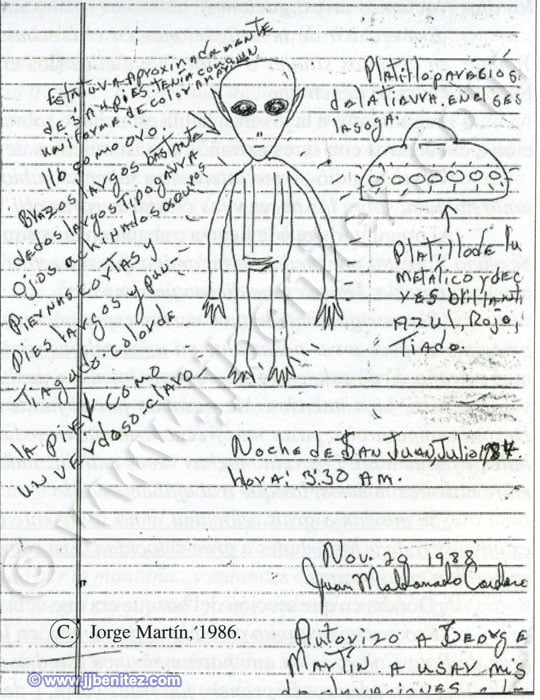 Estatura Aproximadamente
de 3 A 4 pies. Tenía como un
uniforme de color amarillo
llo como ovo.
Brazos largos bastante
dedos largos tipo garra
ojos achinados oscuros
Piernas cortas y
Pies largos y pun-
Tiagudo. Color de
la piel como
un verdoso-claro
Platillo parecido
de la tierra, en
la soga.
Platillo de lu
metálico y de c
y es brillanti
Azul, Rojo,
Noche de San Juan, Julio 1984.
Hora: 3:30 AM.
Nov. 20 1988
Juan Maldonado
C. Jorge Martín, 1986.
Autorizo A George
Martin. A usar mis
declaraciones
© www.jjbenitez.com
© www.jjbenitez.com